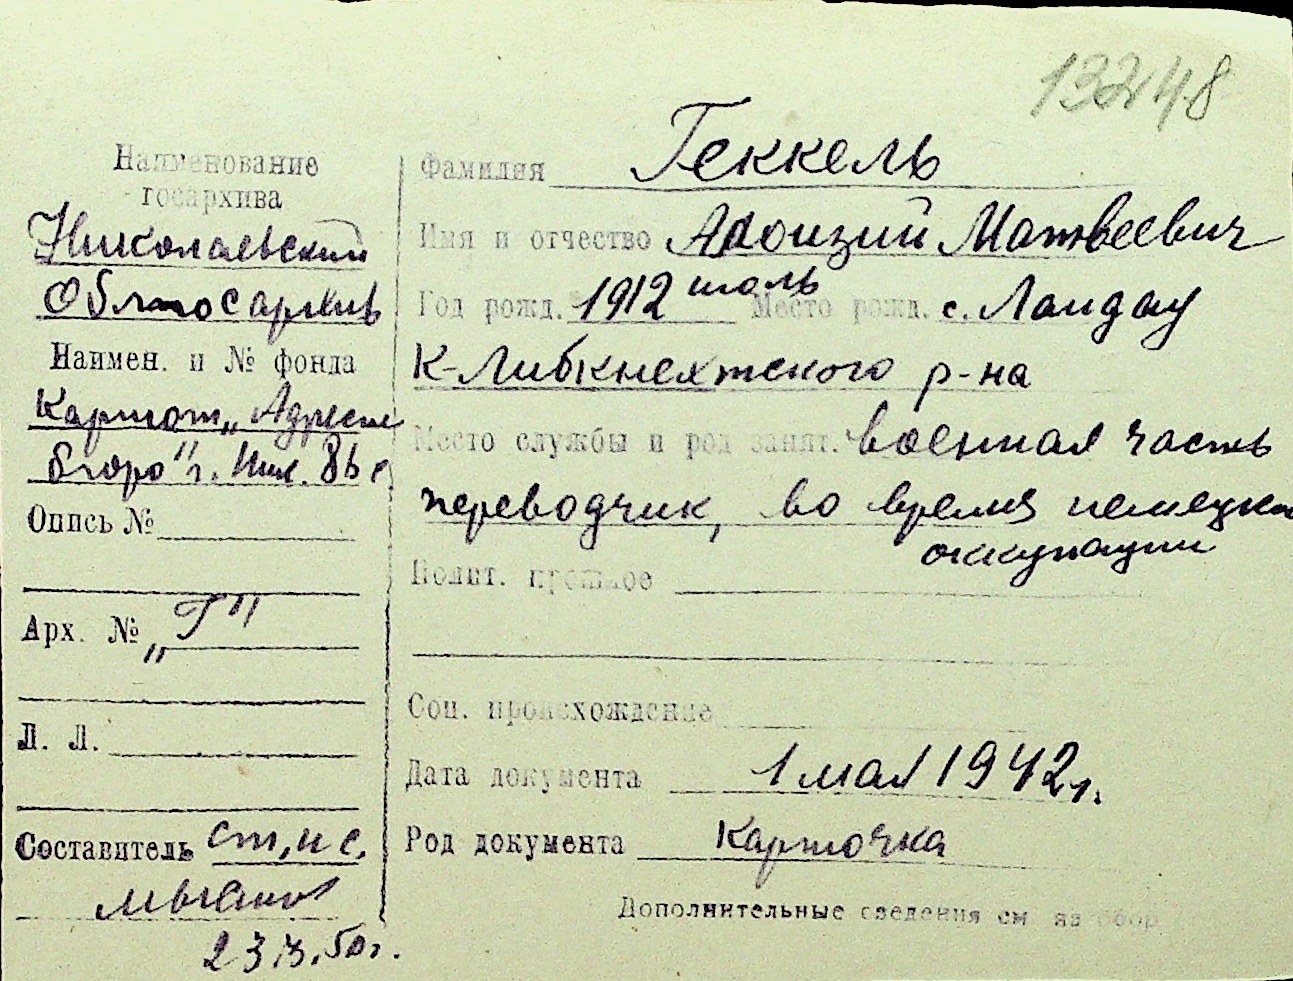 13248
Наименование
госархива
Николаевский
Облгосархив
Наимен. и № фонда
Картот. „Адресн
бюро" г. Ник.
Опись №
Арх. № „Г"
Л. Л.
Составитель ст. н с.
23.3.50г.
Фамилия Геккель
Имя и отчество Алоизий Матвеевич
Год рожд. 1912 июль Место рожд. с. Ландау
К-Либкнехтского р-на
Место службы и род занят. военная часть
переводчик, во время немецкой
оккупации
Полит. прошлое
Соц. происхождение
Дата документа 1 мая 1942 г.
Род документа Карточка
Дополнительные сведения см на обор